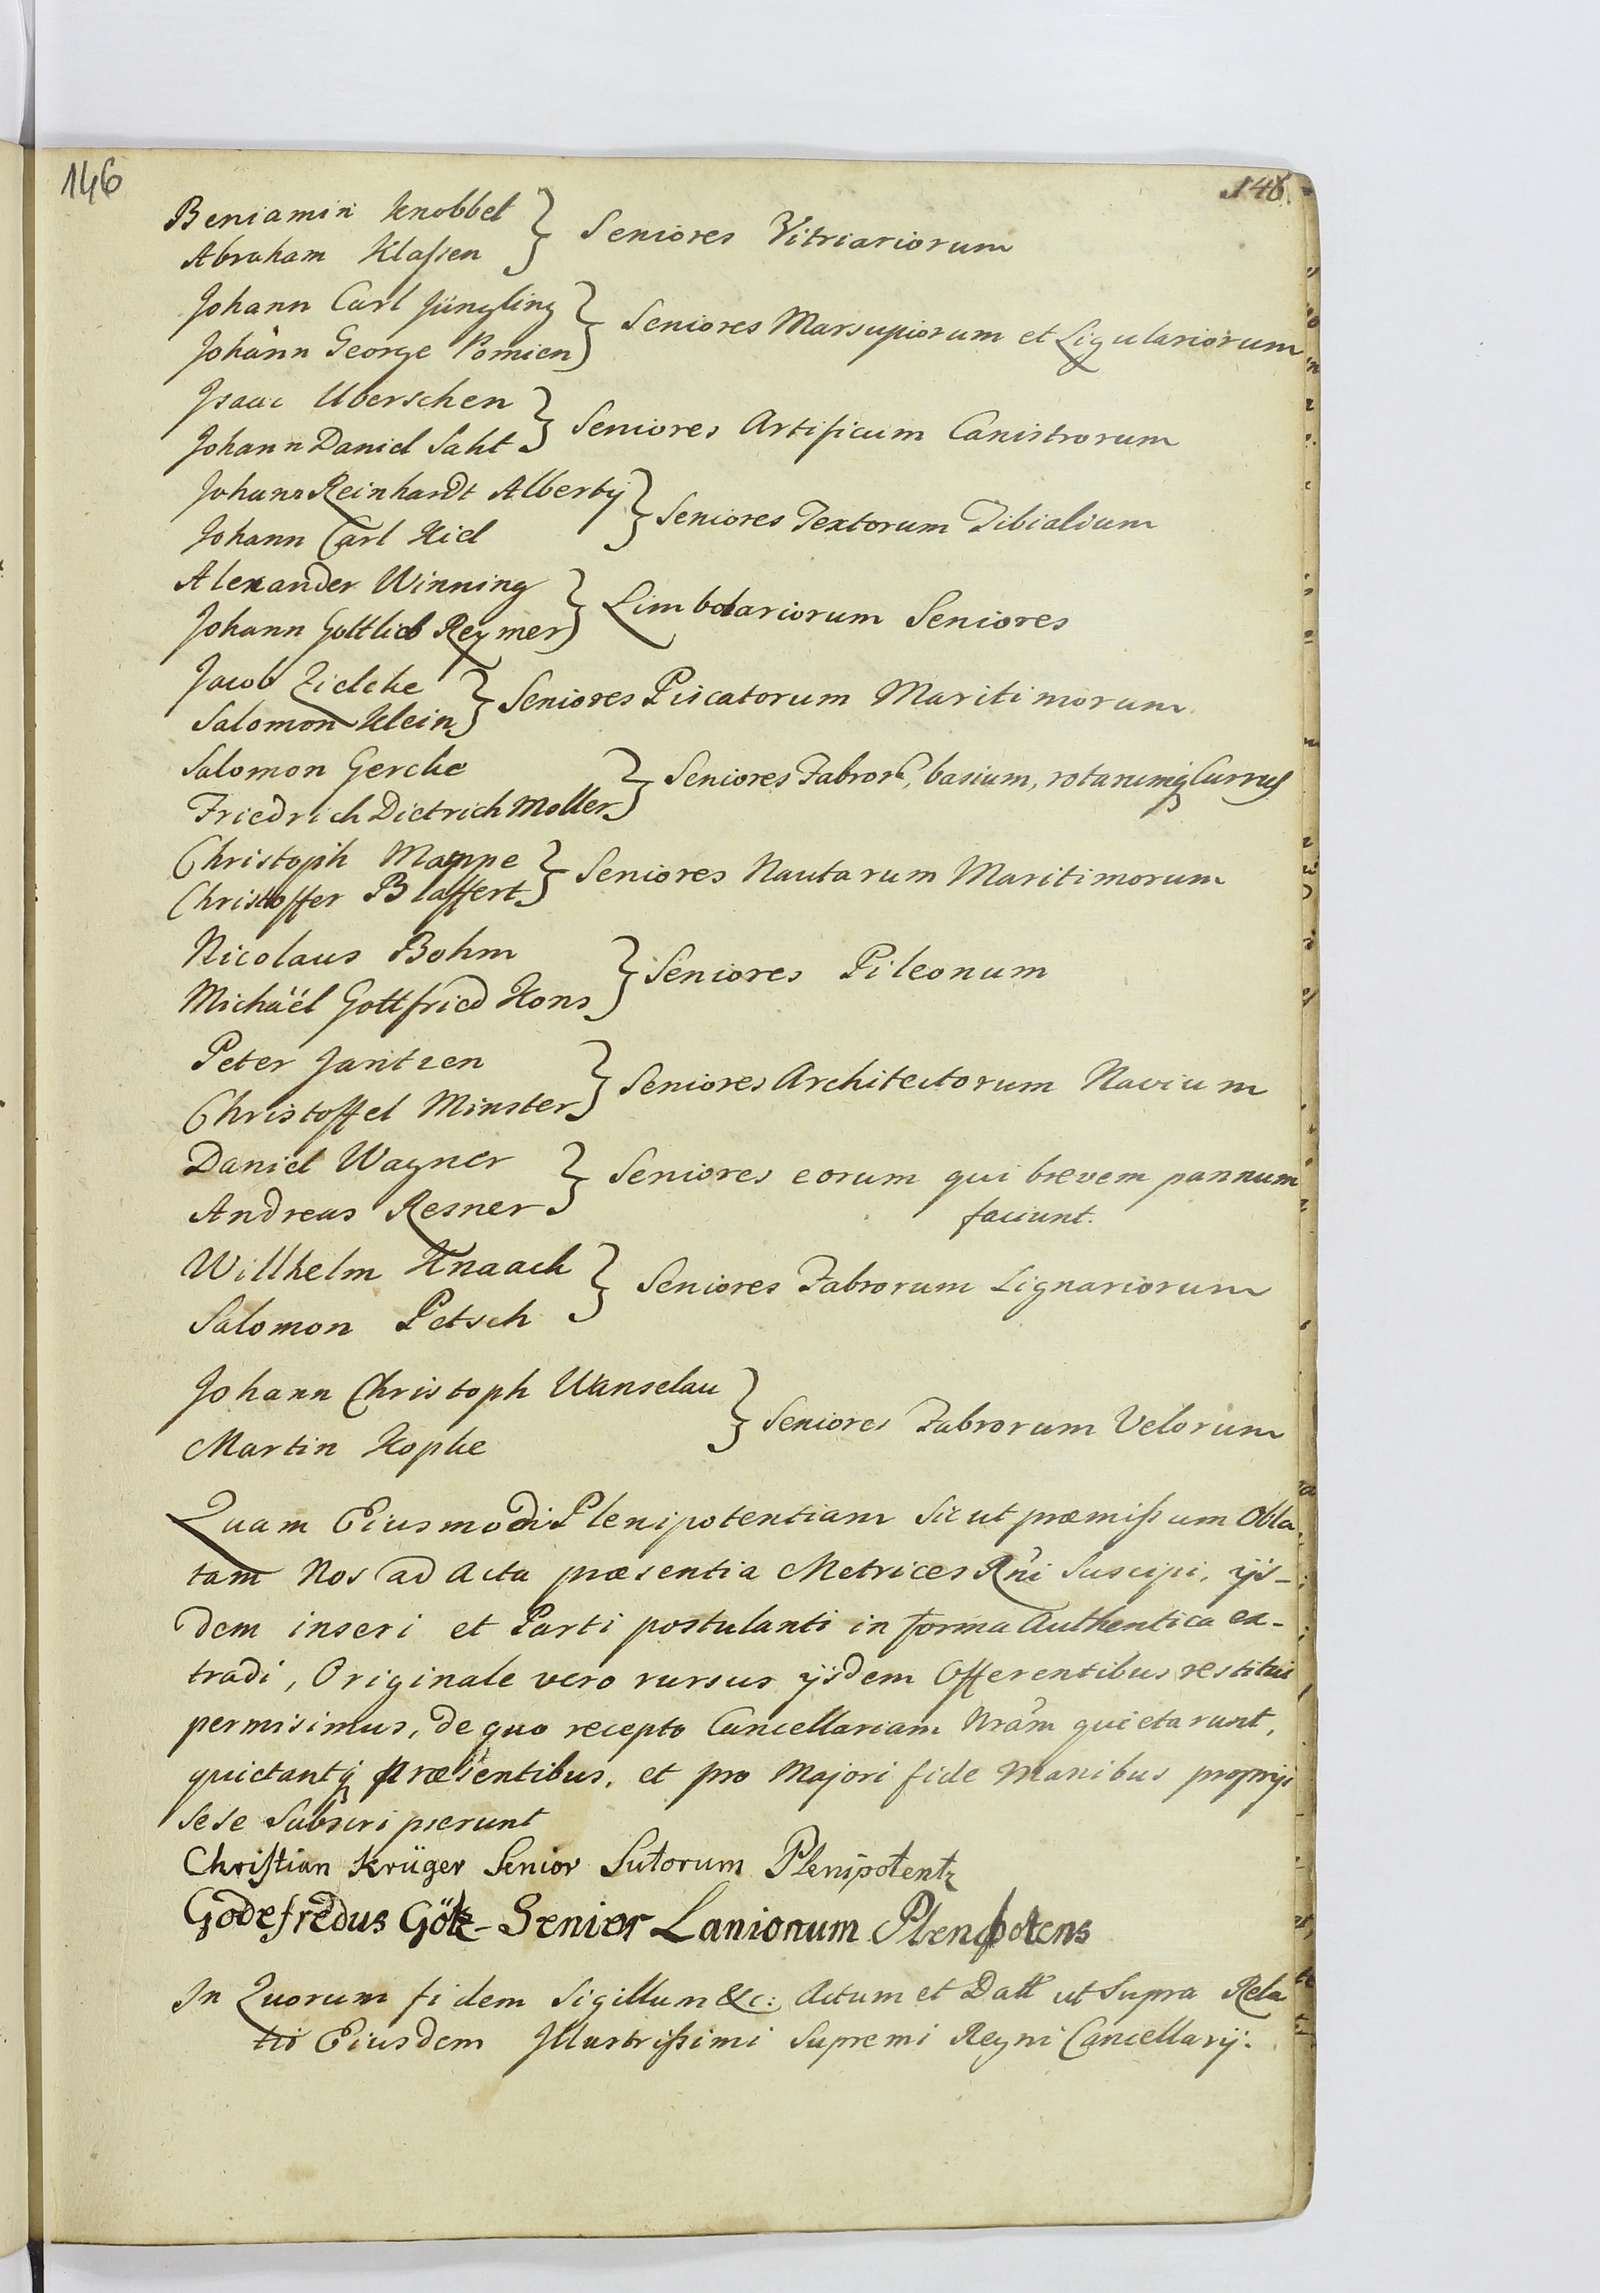 146
146.
Beniamin Knobbel
Abraham Klaßen } Seniores Vitriariorum
Johann Carl Jüngling
Johann George Pomien } Seniores Marsupiorum et Ligulariorum
Isaac Uberschen
Johann Daniel Saht } Seniores Artificum Canistrorum
Johann Reinhardt Alberty
Johann Carl Kiel } Seniores Textorum Tibialium
Alexander Winning
Johann Gottlieb Reymer } Limbolariorum Seniores
Jacob Zielcke
Salomon Klein } Seniores Piscatorum Maritimorum
Salomon Gercke
Friedrich Dietrich Moller } Seniores Fabror, basium, rotarumq Currus
Christoph Mappe
Christoffer Blaffert } Seniores Nautarum Maritimorum
Nicolaus Bohm
Michaël Gottfried Kons } Seniores Pileonum
Peter Jantzen
Christoffel Minster } Seniores Architectorum Navium
Daniel Wagner
Andreas Resner } Seniores eorum qui brevem pannum
faciunt.
Willhelm Knaack
Salomon Petsch } Seniores Fabrorum Lignariorum
Johann Christoph Wanselau
Martin Kopke } Seniores Fabrorum Velorum
Quam Eiusmodi Plenipotentiam Sicut præmißum Obla
tam Nos ad Acta præsentia Metrices Rni Suscipi, ijs-
dem inseri et Parti postulanti in forma Authentica ex-
tradi, Originale vero rursus ijsdem Offerentibus restitui
permisimus, de quo recepto Cancellariam Nram quietarunt,
quietantq præsentibus, et pro Majori fide Manibus proprijs
sese Subscripserunt
Christian Krüger Senior Sutorum Plenipotentz
Godefredus Götz - Senior Lanionum Plenipotens
In Quorum fidem Sigillum &c: Actum et Datt ut Supra Rela
tio Eiusdem Illustrißimi Supremi Regni Cancellarij.